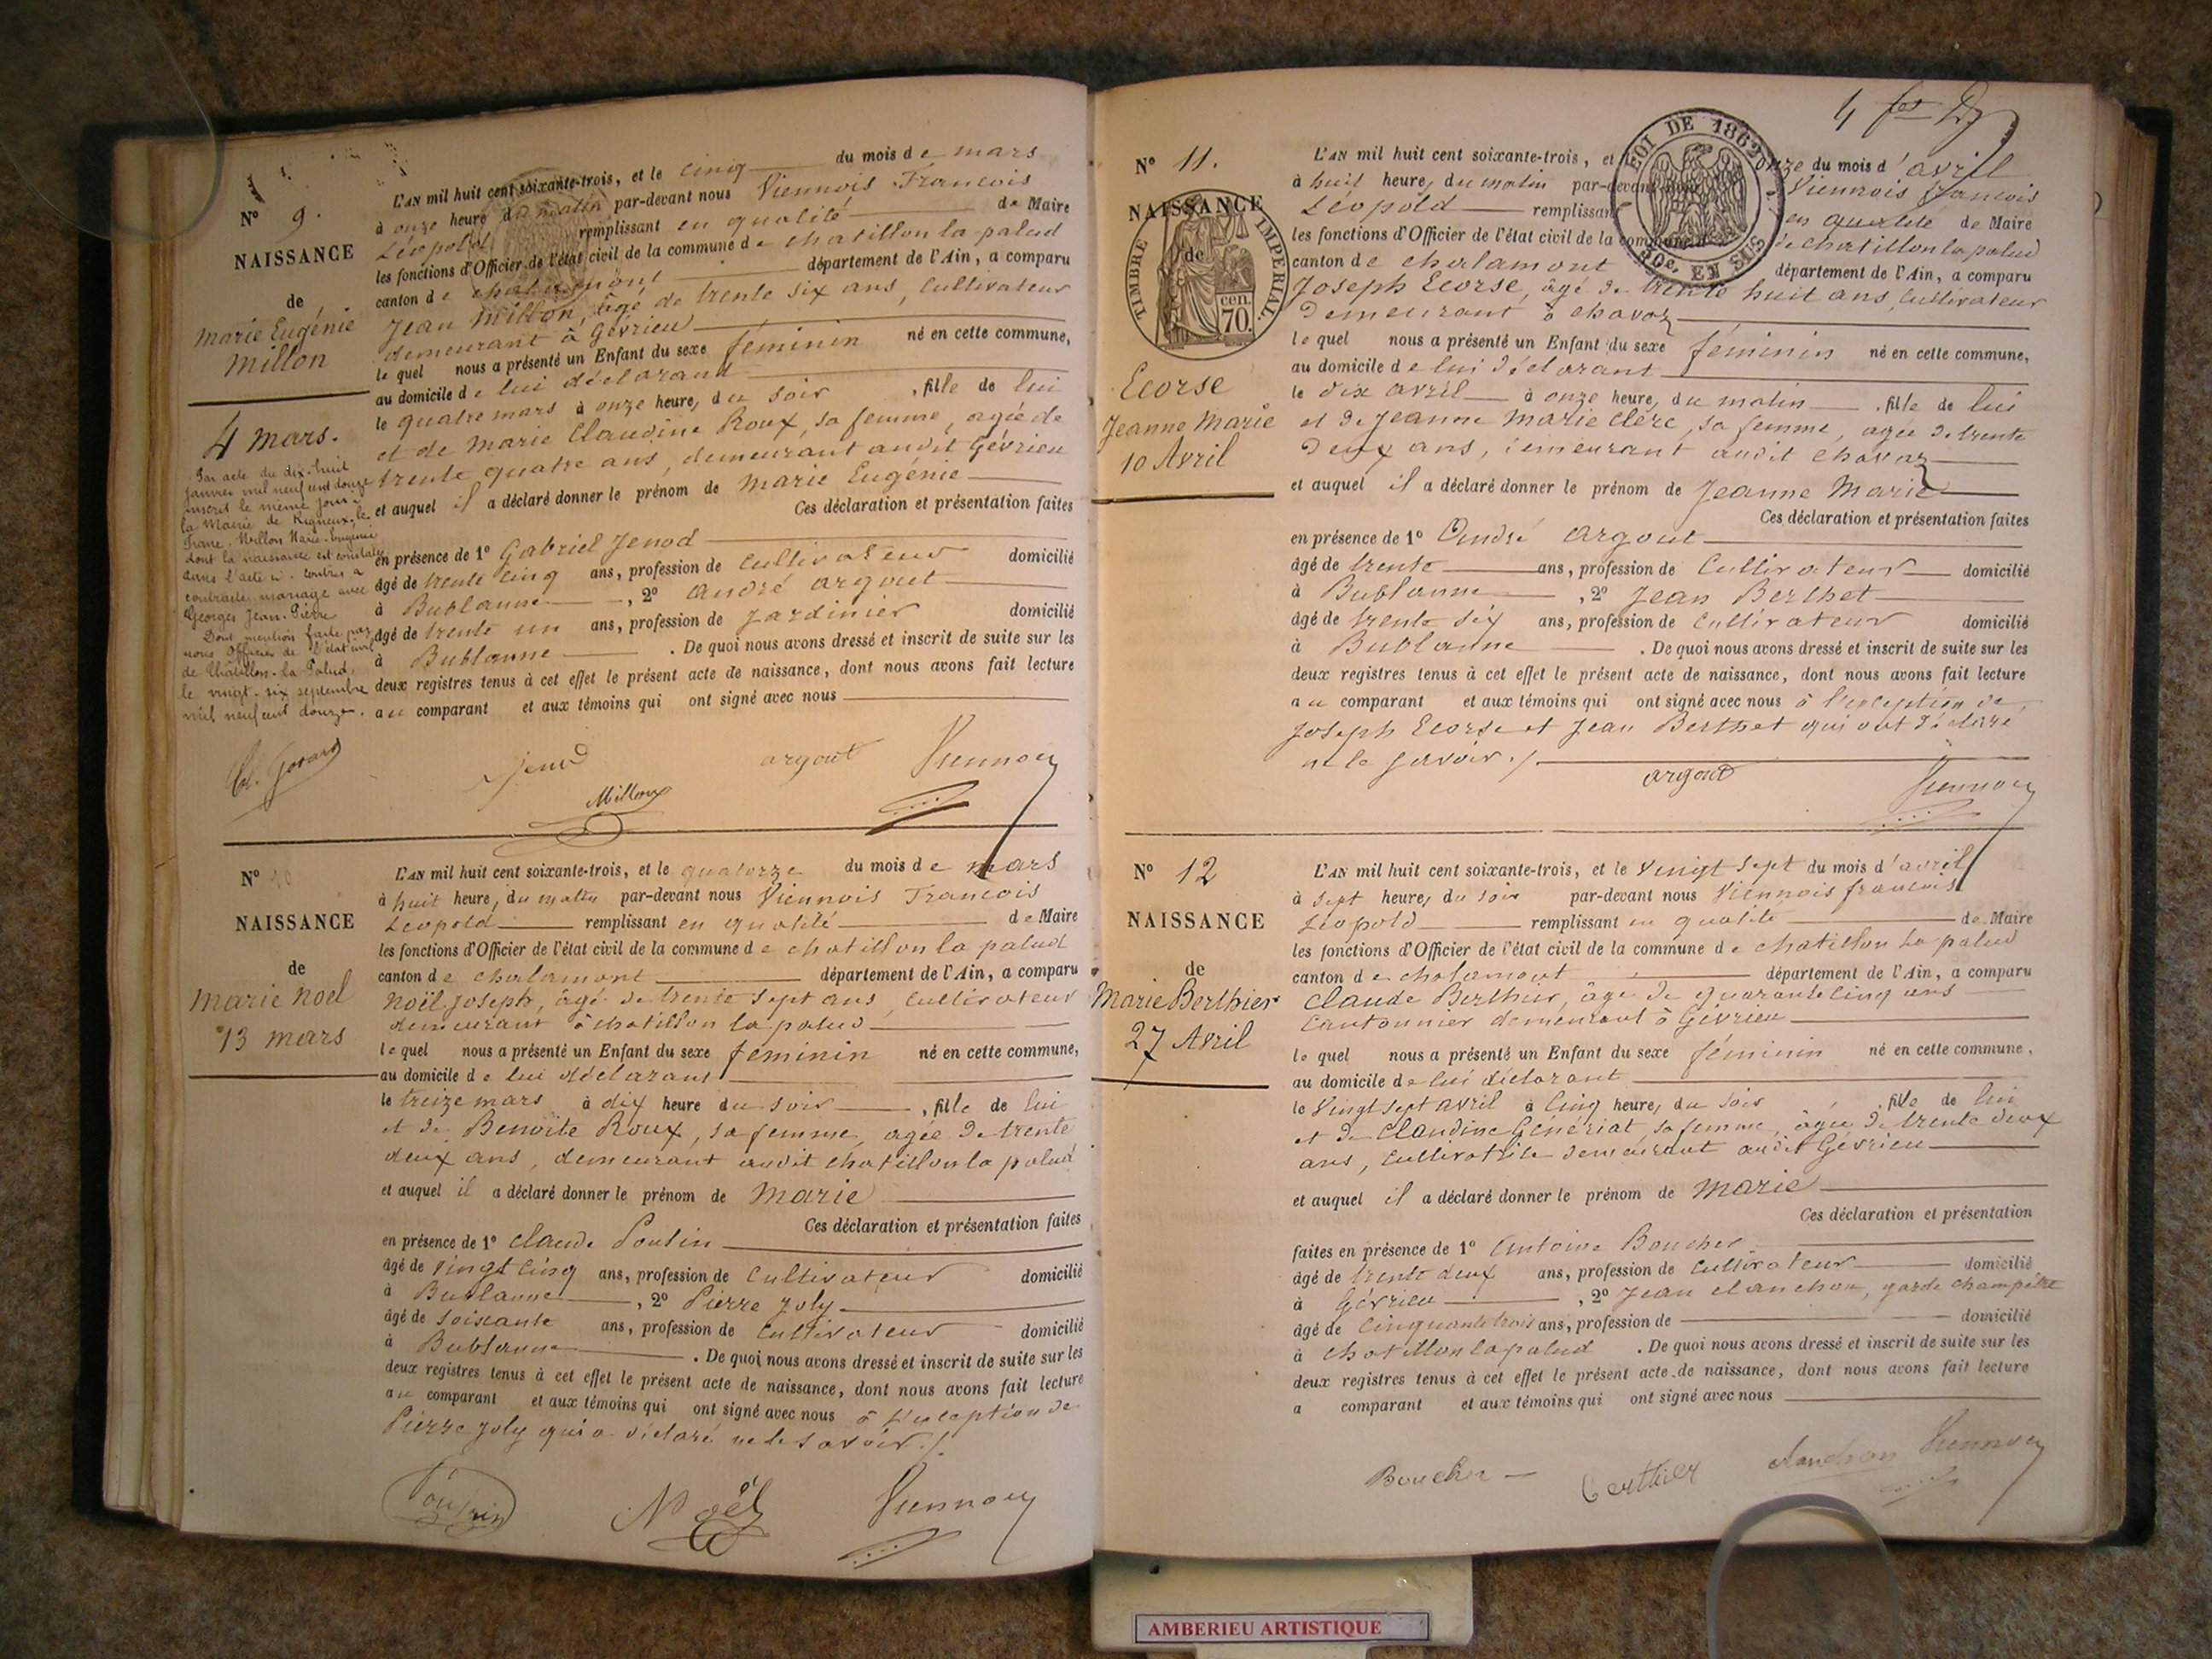 N° 9.
NAISSANCE
de
Marie Eugénie
Millon
4 mars.
Par acte du dix-huit
janvier mil neuf cent douze
inscrit le même jour à
la Mairie de Rigneux-le-
Franc, Millon Marie-Eugénie
dont la naissance est constatée
dans l'acte ci-contre a
contracté mariage avec
Georges Jean-Pierre
Dont mention faite par
nous Officier de l'état civil
de Châtillon-la-Palud,
le vingt-six septembre
mil neuf cent douze.
L'AN mil huit cent soixante-trois, et le cinq du mois de mars
à onze heure du matin par-devant nous Viennois François
Léopold remplissant en qualité de Maire
les fonctions d'Officier de l'état civil de la commune de chatillon la palud
canton de chalamont département de l'Ain, a comparu
Jean Millon, âgé de trente six ans, cultivateur
demeurant à Gévrieu
lequel nous a présenté un Enfant du sexe féminin né en cette commune,
au domicile de lui déclarant
le quatre mars à onze heure, du soir, fille de lui
et de Marie Claudine Roux, sa femme, agée de
trente quatre ans, demeurant audit Gévrieu
et auquel il a déclaré donner le prénom de Marie Eugénie
Ces déclaration et présentation faites
en présence de 1° Gabriel Jenod
âgé de trente cinq ans, profession de cultivateur domicilié
à Bublanne, 2° André argout
âgé de trente un ans, profession de jardinier domicilié
à Bublanne. De quoi nous avons dressé et inscrit de suite sur les
deux registres tenus à cet effet le présent acte de naissance, dont nous avons fait lecture
au comparant et aux témoins qui ont signé avec nous
Jenod argout Viennois
Millon
N° 10
NAISSANCE
de
Marie Noel
13 mars
L'AN mil huit cent soixante-trois, et le quatorze du mois de mars
à huit heure, du matin par-devant nous Viennois François
Léopold remplissant en qualité de Maire
les fonctions d'Officier de l'état civil de la commune de chatillon la palud
canton de chalamont département de l'Ain, a comparu
Noël Joseph, âgé de trente sept ans, cultivateur
demeurant à chatillon la palud
lequel nous a présenté un Enfant du sexe féminin né en cette commune,
au domicile de lui déclarant
le treize mars à dix heure du soir, fille de lui
et de Benoite Roux, sa femme, agée de trente
deux ans, demeurant audit chatillon la palud
et auquel il a déclaré donner le prénom de Marie
Ces déclaration et présentation faites
en présence de 1° Claude Poutin
âgé de vingt cinq ans, profession de cultivateur domicilié
à Bublanne, 2° Pierre Joly
âgé de soixante ans, profession de cultivateur domicilié
à Bublanne. De quoi nous avons dressé et inscrit de suite sur les
deux registres tenus à cet effet le présent acte de naissance, dont nous avons fait lecture
au comparant et aux témoins qui ont signé avec nous à l'exception de
Pierre Joly qui a déclaré ne le savoir ./.
Noël Viennois
N° 11.
NAISSANCE
de
TIMBRE IMPERIAL
cen.
70.
Ecorse
Jeanne Marie
10 Avril
LOI DE 1862
50c. EN SUS
L'AN mil huit cent soixante-trois, et le onze du mois d'avril
à huit heure, du matin par-devant nous Viennois François
Léopold remplissant en qualité de Maire
les fonctions d'Officier de l'état civil de la commune de chatillon la palud
canton de chalamont département de l'Ain, a comparu
Joseph Ecorse, âgé de trente huit ans, cultivateur
demeurant à chavoz
lequel nous a présenté un Enfant du sexe féminin né en cette commune,
au domicile de lui déclarant
le dix avril à onze heure, du matin, fille de lui
et de Jeanne Marie Clerc, sa femme, agée de trente
deux ans, demeurant audit chavaz
et auquel il a déclaré donner le prénom de Jeanne Marie
Ces déclaration et présentation faites
en présence de 1° André argout
âgé de trente ans, profession de cultivateur domicilié
à Bublanne, 2° Jean Berthet
âgé de trente six ans, profession de cultivateur domicilié
à Bublanne. De quoi nous avons dressé et inscrit de suite sur les
deux registres tenus à cet effet le présent acte de naissance, dont nous avons fait lecture
au comparant et aux témoins qui ont signé avec nous à l'exception de
Joseph Ecorse et Jean Berthet qui ont déclaré
ne le savoir ./.
argout Viennois
N° 12
NAISSANCE
de
Marie Berthier
27 Avril
L'AN mil huit cent soixante-trois, et le vingt sept du mois d'avril
à sept heure, du soir par-devant nous Viennois françois
Léopold remplissant en qualité de Maire
les fonctions d'Officier de l'état civil de la commune de chatillon la palud
canton de chalamont département de l'Ain, a comparu
Claude Berthier, âgé de quarante cinq ans
Cantonnier demeurant à Gévrieu
lequel nous a présenté un Enfant du sexe féminin né en cette commune,
au domicile de lui déclarant
le vingt sept avril à cinq heure, du soir, fille de lui
et de Claudine Géneriat sa femme, agée de trente deux
ans, cultivatrice demeurant audit Gévrieu
et auquel il a déclaré donner le prénom de Marie
Ces déclaration et présentation
faites en présence de 1° Antoine Boucher
âgé de trente deux ans, profession de cultivateur domicilié
à Gévrieu, 2° Jean clanchon, garde champêtre
âgé de cinquante trois ans, profession de domicilié
à chatillon la palud. De quoi nous avons dressé et inscrit de suite sur les
deux registres tenus à cet effet le présent acte de naissance, dont nous avons fait lecture
a comparant et aux témoins qui ont signé avec nous
Boucher Berthier Viennois
AMBERIEU ARTISTIQUE